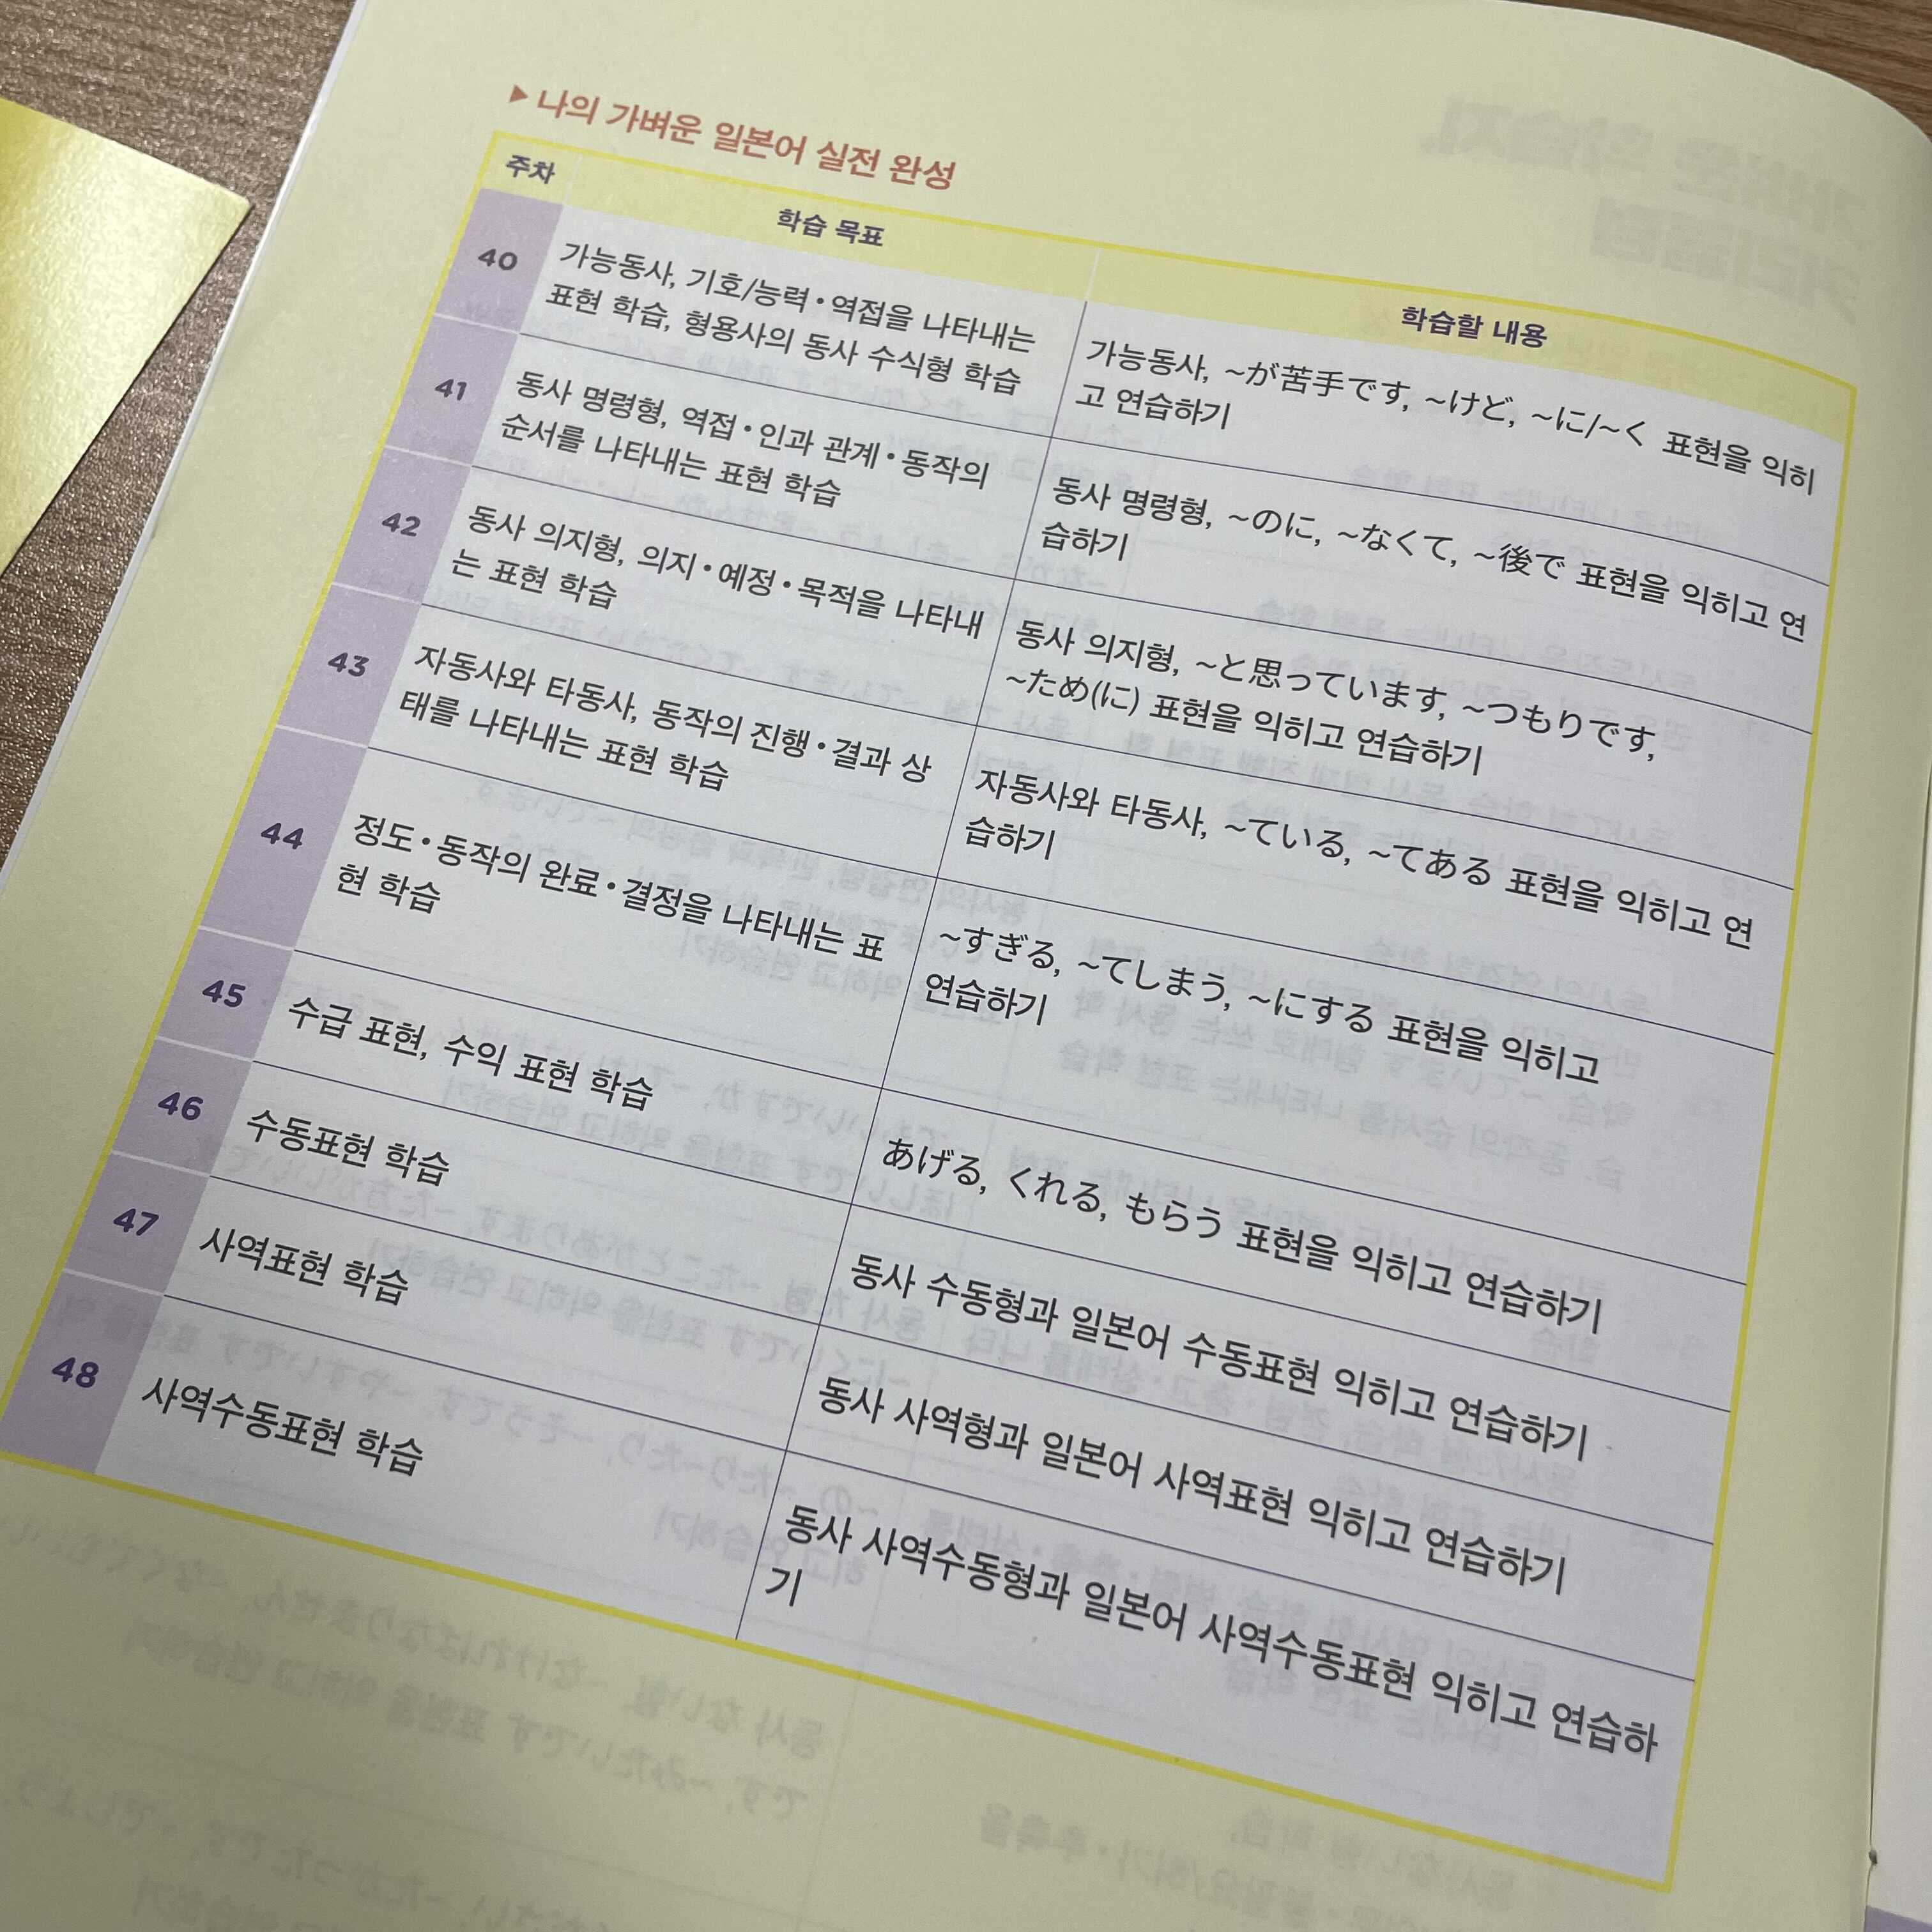 ▶ 나의 가벼운 일본어 실전 완성
주차
학습 목표
학습할 내용
40
가능동사, 기호/능력•역접을 나타내는
표현 학습, 형용사의 동사 수식형 학습
가능동사, ~が苦手です, ~けど, ~に/~く 표현을 익히
고 연습하기
41
동사 명령형, 역접•인과 관계•동작의
순서를 나타내는 표현 학습
동사 명령형, ~のに, ~なくて, ~後で 표현을 익히고 연
습하기
42
동사 의지형, 의지•예정•목적을 나타내
는 표현 학습
동사 의지형, ~と思っています, ~つもりです,
~ため(に) 표현을 익히고 연습하기
43
자동사와 타동사, 동작의 진행•결과 상
태를 나타내는 표현 학습
자동사와 타동사, ~ている, ~てある 표현을 익히고 연
습하기
44
정도•동작의 완료•결정을 나타내는 표
현 학습
~すぎる, ~てしまう, ~にする 표현을 익히고
연습하기
45
수급 표현, 수익 표현 학습
あげる, くれる, もらう 표현을 익히고 연습하기
46
수동표현 학습
동사 수동형과 일본어 수동표현 익히고 연습하기
47
사역표현 학습
동사 사역형과 일본어 사역표현 익히고 연습하기
48
사역수동표현 학습
동사 사역수동형과 일본어 사역수동표현 익히고 연습하
기